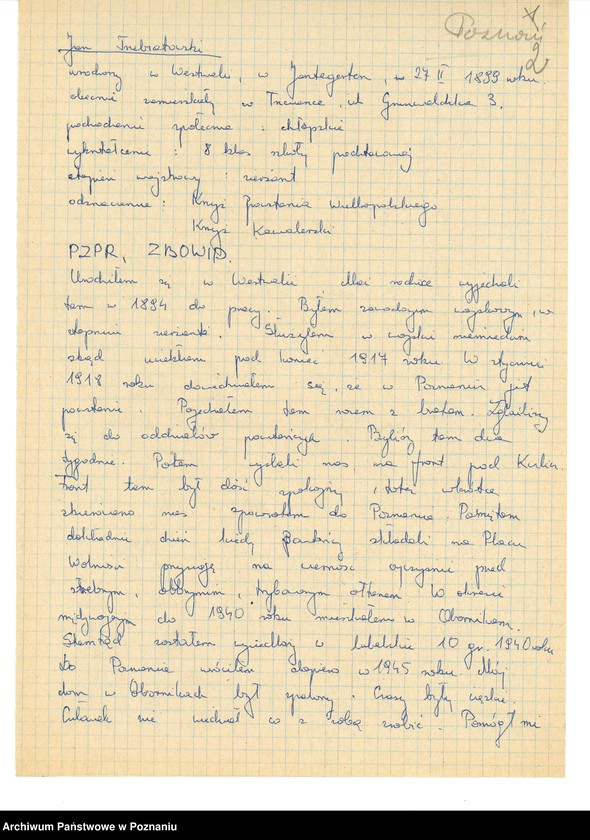 Poznań
2
Jan Trebiatowski
urodzony w Westwalii, w , w 27 II 1899 roku.
obecnie zamieszkały w Trzciance, ul. Grunwaldzka 3.
pochodzenie społeczne : chłopskie
wykształcenie : 8 klas szkoły podstawowej
stopień wojskowy : sierżant
odznaczenie : Krzyż Powstania Wielkopolskiego
Krzyż Kawalerski
PZPR, ZBOWID.
Urodziłem się w Westwalii. Moi rodzice wyjechali
tam w 1894 do pracy. Byłem zawodowym wojskowym, w
stopniu sierżanta. Służyłem w wojsku niemieckim
skąd uciekłem pod koniec 1917 roku. W styczniu
1918 roku dowiedziałem się, że w Poznaniu jest
powstanie. Pojechałem tam wraz z bratem. Zgłosiliśmy
się do oddziałów powstańczych. Byliśmy tam dwa
tygodnie. Potem wysłali nas na front pod
Front tam był dość spokojny, toteż wkrótce
skierowano nas spowrotem do Poznania. Pamiętam
dokładnie dzień kiedy składali na Placu
Wolności przysięgę na wierność ojczyźnie przed
srebrnym, olbrzymim, ołtarzem. W okresie
międzywojennym do 1940 roku mieszkałem w Obornikach.
Stamtąd zostałem wysiedlony w lubelskie 10 gr. 1940 roku
Do Poznania wróciłem dopiero w 1945 roku. Mój
dom w Obornikach był spalony. Czasy były ciężkie.
Człowiek nie wiedział co z sobą zrobić. Pomógł mi
Archiwum Państwowe w Poznaniu